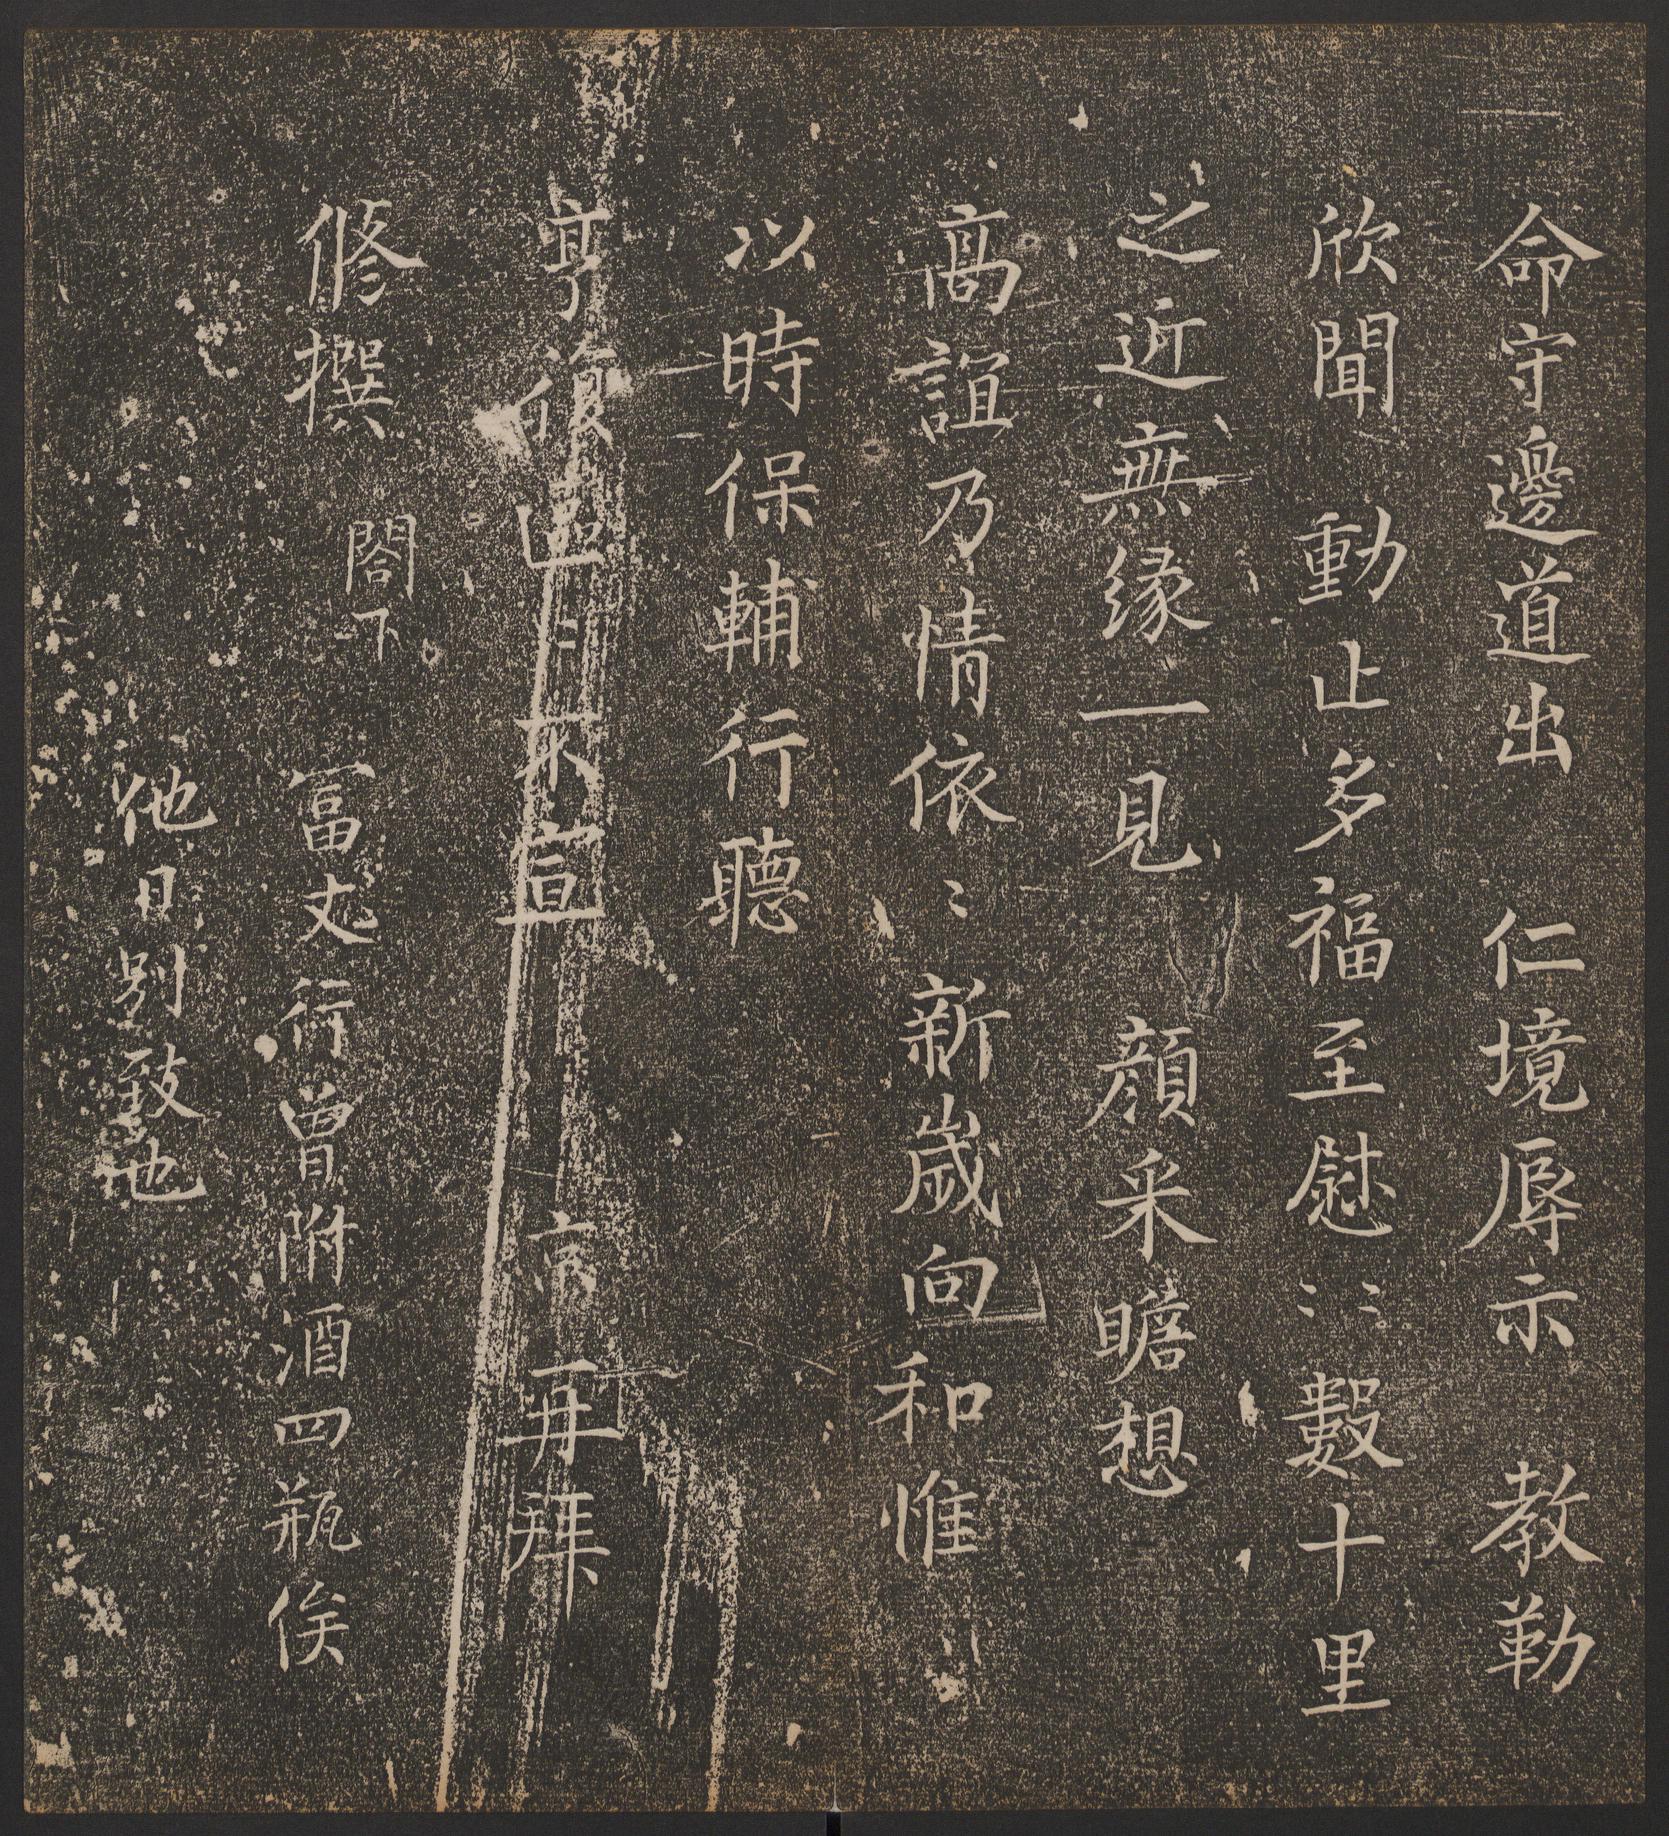 命守邊道出 仁境辱示 教勒
欣聞 動止多福至慰〻數十里
之近無緣一見 顏采瞻想
高誼乃情依〻 新歲向和惟
以時保輔行聽
亨復區區不宣 京再拜
脩撰 閤下 富丈行曾附酒四瓶俟
他日別致也